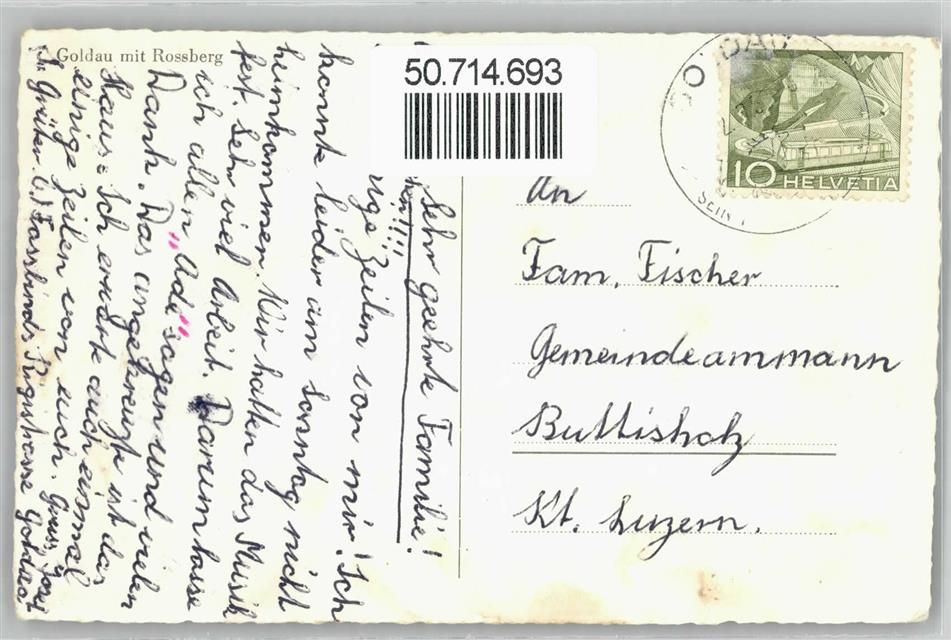 Goldau mit Rossberg
50.714.693
10 HELVETIA
Sehr geehrte Familie!
!!!!
Zeilen von mir! Ich
konnte leider am Sonntag nicht
heimkommen. Wir hatten das Musik
fest. Sehr viel Arbeit. Darum lasse
ich allen "Adé" sagen und vielen
Dank. Das angekreuzte ist das
Haus. Ich erwarte auch einmal
einige Zeilen von euch. Gruss Josef
Fassbinds Rigistrasse Goldau
An
Fam. Fischer
Gemeindeammann
Buttisholz
Kt. Luzern.